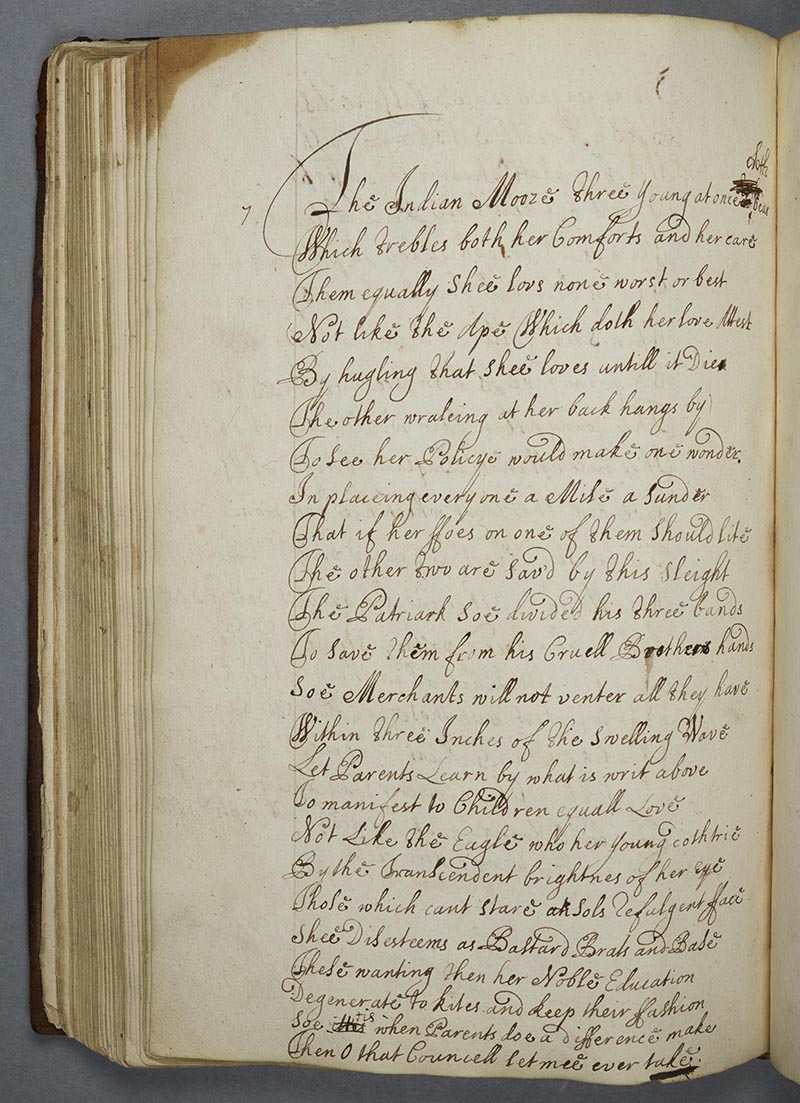 doth
7 The Indian Mooze three young at once bear
Which trebles both her Comforts and her care
Them equally Shee lovs none worst or best
Not like the Ape Which doth her love Attest
By hugling that shee loves untill it Die
The other wraleing at her back hangs by
To see her Policye would make one wonder
In placeing every one a Mile a sunder
That if her ffoes on one of them should lite
The other two are sav'd by this sleight
The Patriark soe divided his three bands
To save them from his Cruell Brothers hands
Soe Merchants will not venter all they have
Within three Inches of the swelling Wave
Let Parents Learn by what is writ above
To manifest to Children equall Love
Not Like the Eagle who her young ooth trie
By the Transcendent brightnes of her eye
Those which cant stare at Sols refulgent fface
Shee Disesteems as Bastard Brats and Base
These wanting then her Noble Education
Degenerate to kites and keep their fashion
Soe tis when Parents doe a difference make
Then O that Councell let mee ever take